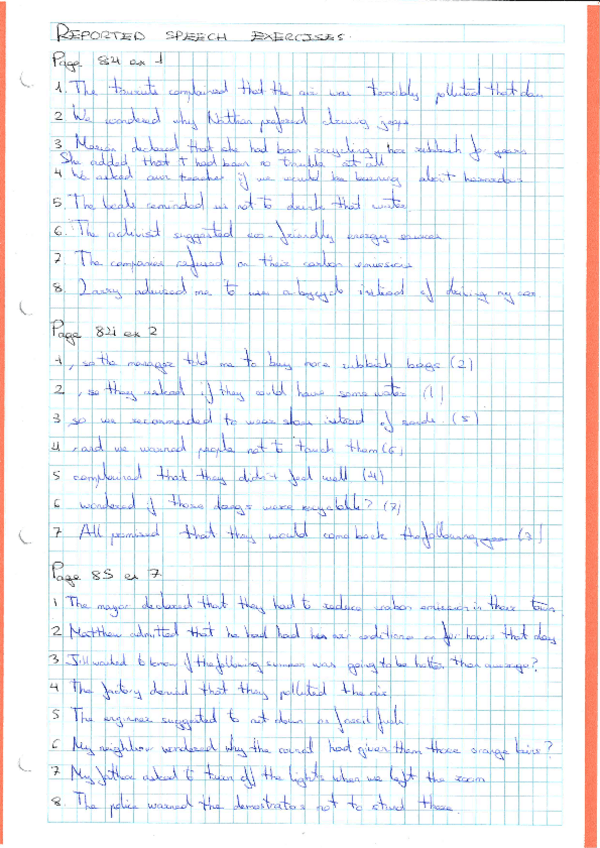 REPORTED SPEECH EXERCISES.
Page 84 ex 1
1. The tourists complained that the air was terribly polluted that day
2 We wondered why Nathan preferred driving
3 declared that she had been recycling her rubbish for years
She added that I had been no trouble at all
4 We asked our teacher if we would be learning about
5. The locals reminded us not to drink that water
6. The activist suggested eco-friendly energy sources
7. The companies refused on their carbon emissions
8. Larry adviced me to use a bycycle instead of driving my car.
Page 84 ex 2
1, so the manager told me to buy more rubbish bags (2)
2, so they asked if they could have some water (1)
3 so we recommended to wear instead of (5)
4 and we warned people not to touch them (6)
5 complained that they didn't feel well (4)
6 wondered if those were recyclable? (7)
7 All promised that they would come back the following (3)
Page 85 ex 7
1 The mayor declared that they had to reduce carbon emission in their town
2 Matthew admitted that he had had his air conditioner on for hours that day
3 Jill wanted to know if the following summer was going to be hotter than average?
4 The factory denied that they polluted the air
5 The engineer suggested to cut down on fossil fuels
6 My neighbor wondered why the council had given them those orange bins?
7 My father asked to turn off the lights when we left the room
8. The police warned the demostrators not to stand there.